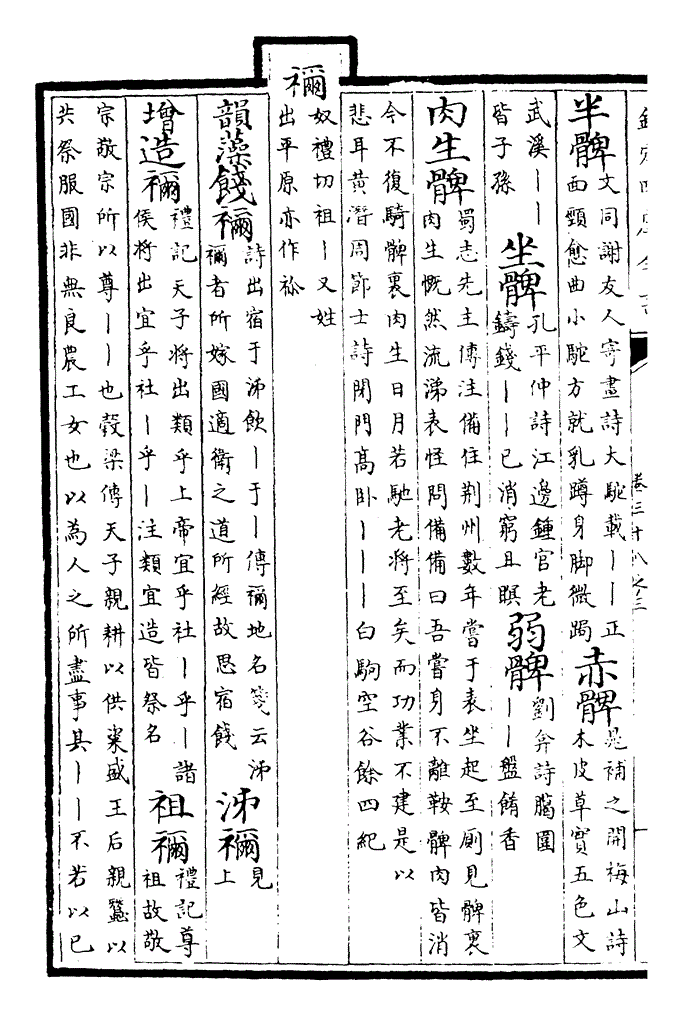 卷三十八之三
半髀
文同謝友人寄畫詩大駝載丨丨正
面頸愈曲小駝方就乳蹲身脚微跼
赤髀
晁補之開梅山詩
木皮草實五色文
武溪丨丨
皆子孫
坐髀
孔平仲詩江邊鍾官老
鑄錢丨丨已消窮且瞑
弱髀
劉弇詩臈圍
丨丨盤餚香
肉生髀
蜀志先主傳注備住荆州數年嘗于表坐起至厠見髀裏
肉生慨然流涕表怪問備備曰吾嘗身不離鞍髀肉皆消
今不復騎髀裏肉生日月若馳老將至矣而功業不建是以
悲耳黄潛周節士詩閉門高卧丨丨丨白駒空谷餘四紀
禰
奴禮切祖丨又姓
出平原亦作祢
韻藻餞禰
詩出宿于泲飲丨于丨傳禰地名箋云泲
禰者所嫁國適衛之道所經故思宿餞
泲禰
見
上
增造禰
禮記天子將出類乎上帝宜乎社丨乎丨諸
侯將出宜乎社丨乎丨注類宜造皆祭名
祖禰
禮記尊
祖故敬
宗敬宗所以尊丨丨也穀梁傳天子親耕以供粢盛王后親蠶以
共祭服國非無良農工女也以為人之所盡事其丨丨不若以已